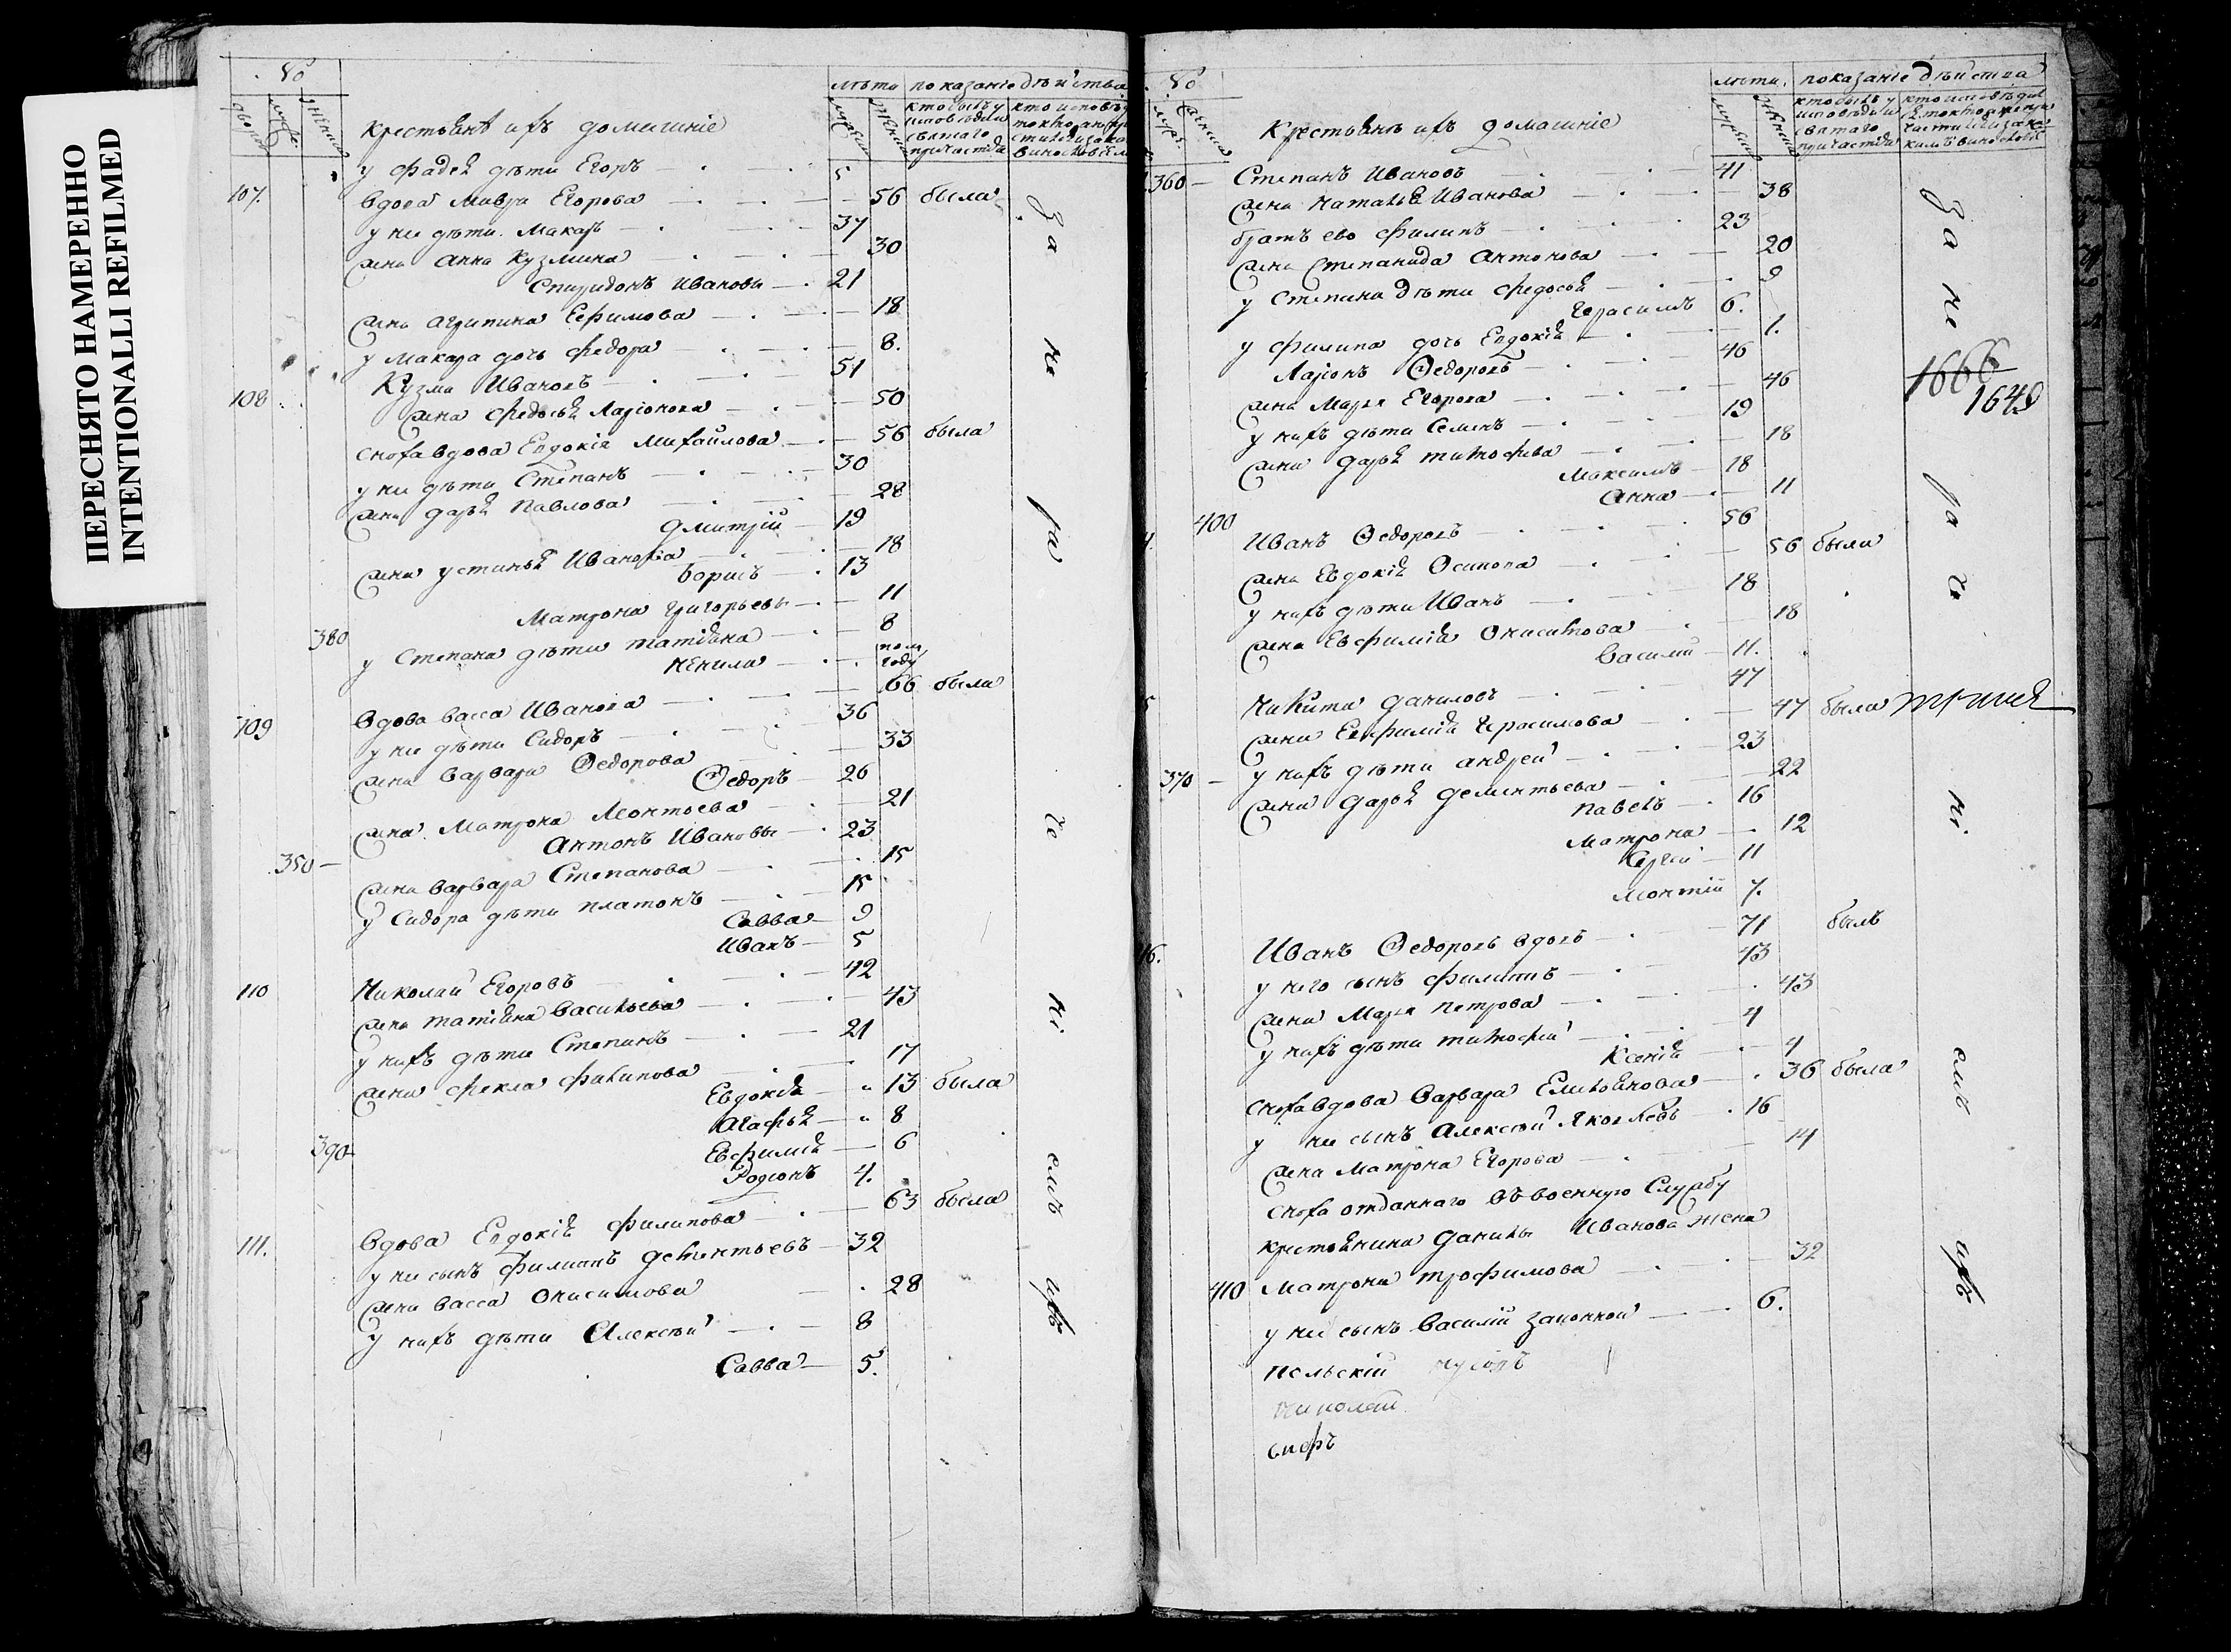 ПЕРЕСНЯТО НАМЕРЕННО
INTENTIONALLI REFILMED
№
лѣта показание дѣйства
крестьянѣ ихъ домашнiе
у фадея дѣти Егоръ 5
107. вдова Мавра Егорова 56 была
у нее дѣти Макаръ 37
жена Анна Кузмина 30
Спиридонъ Ивановы 21
жена Агрипина Ефимова 18
у Макара дочь Федора 8.
108 Кузма Ивановъ 51
жена Федосья Ларiонова 50
сноха вдова Евдокiя Михайлова 56 была
у нее дѣти Степанъ 30
жена Дарья Павлова 28
Дмитрiй 19
жена Устинья Иванова 18
Борисъ 13
Матрона Григорьевы 11
380 у Степана дѣти Татiяна 8
Ненила пол году
109 вдова Васса Иванова 66 была
у нее дѣти Сидоръ 36
жена Варвара Ѳедорова 33
Ѳедоръ 26
жена Матрона Леонтьева 21
Антонъ Ивановы 23
350 жена Варвара Степанова 15
у Сидора дѣти Платонъ 15
Савва 9
Иванъ 5
110 Николай Егоровъ 42
жена Татiяна Васильева 43
у нихъ дѣти Степанъ 21
жена Фекла Филипова 17
Евдокiя 13 была
Агафья 8
390 Евфимiя 6
Родiонъ 4.
111. Вдова Евдокiя Филипова 63 была
у нее сынъ Филиппъ Дементьевъ 32
жена Васса Онисимова 28
у нихъ дѣти Алексѣй 8
Савва 5.
За не ра че нi емъ ихъ
№
лѣта. показанiе дѣйства
Крестьянѣ ихъ домашнiе
360 Степанъ Ивановъ 41
жена Наталья Иванова 38
братъ ево Филипъ 23
жена Степанида Антонова 20
у Степана дѣти Федосья 9
Герасимъ 6.
у Филипа дочь Евдокiя 1.
Ларiонъ Ѳедоровъ 46
жена Марья Егорова 46
у нихъ дѣти Семенъ 19
жена Дарья Тимофева 18
Максимъ 18
Анна 11
400 Иванъ Ѳедоровъ 56
жена Евдокiя Осипова 56 была
у нихъ дѣти Иванъ 18
жена Евфимiя Онисимова 18
Василий 11.
Никита Даниловъ 47
жена Евфимiя Герасимова 47 была
у нихъ дѣти Андрей 23
370 жена Дарья Дементьева 22
Павелъ 16
Матрона 12
Сергей 11
Леонтiй 7.
Иванъ Ѳедоровъ вдовъ 71 былъ
у него сынъ Филиппъ 43
жена Марья Петрова 43
у нихъ дѣти Тимофей 4
Ксенiя 4
сноха вдова Варвара Емельянова 36 была
у нее сынъ Алексѣй Яковлевъ 16
жена Матрона Егорова 14
сноха отданнаго въ военную службу
крестьянина Данилы Иванова жена
410 Матрона Трофимова 32
у нее сынъ Василий законной 6.
польскiй
Николай
За не ра че нi емъ ихъ
1666
1649